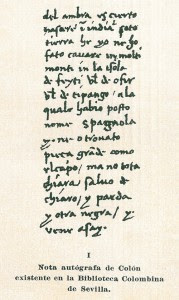 del ambra es cierto
nascere in india soto
tierra he yo ne ho
fato cavare in molti
monti in la isola
de feyti vel de ofir
vel de cipango, a la
quale habio posto
nome spagnola
y ne o trovato
pieça grãde como
el capo, ma no tota
chiara, salvo de
chiaro y parda
y otra negra, y
vene asay.
I
Nota autógrafa de Colón
existente en la Biblioteca Colombina
de Sevilla.